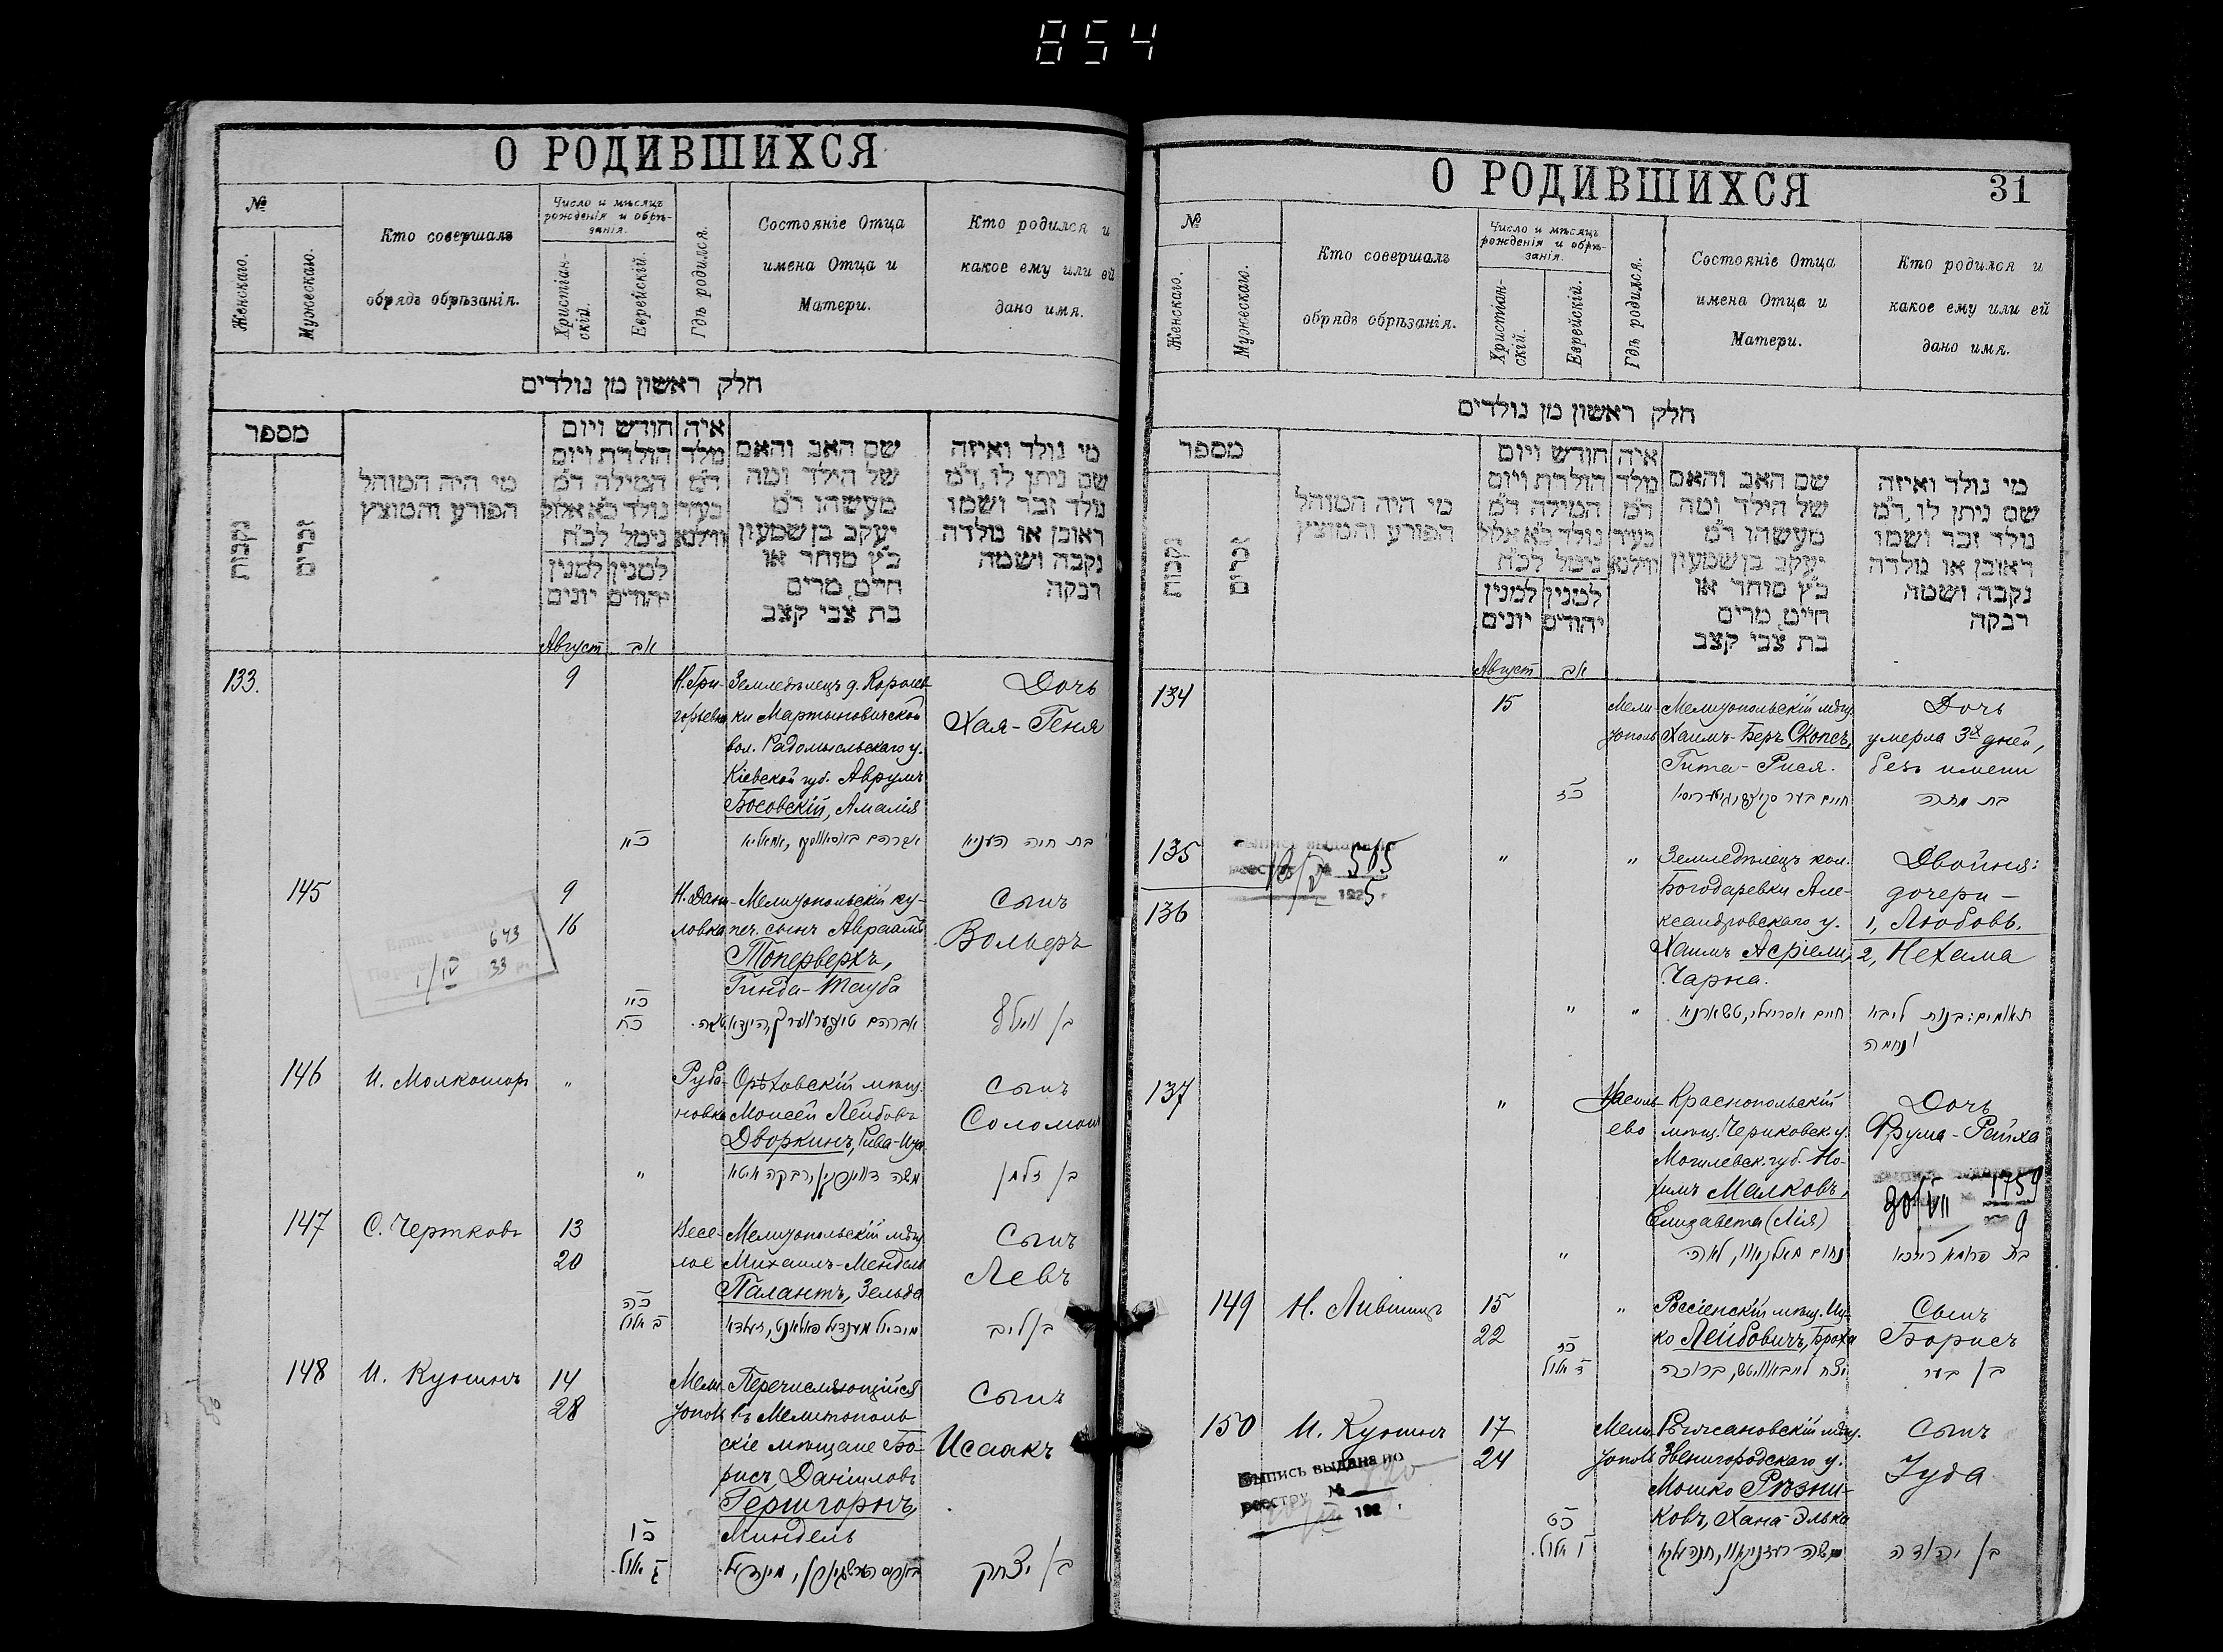 854
О РОДИВШИХСЯ
№
Женскаго.
Мужескаго.
Кто совершалъ
обрядъ обрѣзанія.
Число и мѣсяцъ
рожденія и обрѣ-
занія.
Христіан-
скій.
Еврейскій.
Гдѣ родился.
Состояніе Отца
имена Отца и
Матери.
Кто родился и
какое ему или ей
дано имя.
חלק ראשון מן נולדים
מספר
נקבות
זכרים
מי היה המוהל
הפורע והמוצץ
חודש ויום
הולדת ויום
המילה ד״מ
נולד כ״א אלול
נימל לכ״ח
למנין למנין
יהודים יונים
איה
מלד
ד״מ
בעיר
ווילנא
שם האב והאם
של הילד ומה
מעשהו ד״מ
יעקב בן שמעון
כ״ץ סוחר או
חיים, מרים
בת צבי קצב
מי נולד ואיזה
שם ניתן לו, ד״מ
נולד זכר ושמו
ראובן או נולדה
נקבה ושמה
רבקה
Август
אב
133.
9
Н. Гри-
горьевка
Земледѣлецъ д. Королев-
ки Мартыновичской
вол. Радомысльскаго у.
Кіевской губ. Аврумъ
Босовскій, Амалія
Дочь
Хая-Геня
כ״א
145
9
16
Н. Дани-
ловка
Мелитопольскій ку-
печ. сынъ Авраамъ
Топерверхъ,
Гинда-Тауба
Сынъ
Вольфъ
643
1/IV 33
כ״א
כ״ח
146
И. Молкошор
"
Руба-
новка
Орѣховскій мѣщ.
Моисей Лейбовъ
Дворкинъ, Рива-Ита
Сынъ
Соломон
"
בן זלמן
147
С. Чертковъ
13
20
Весе-
лое
Мелитопольскій мѣщ.
Михаилъ-Мендель
Палантъ, Зельда
Сынъ
Левъ
כ״ה
ב׳ אלול
בן ליב
148
И. Кушниръ
14
28
Мели-
тополь
Перечисляющійся
въ Мелитополь-
скіе мѣщане Бо-
рисъ Даніиловъ
Гершгорнъ,
Миндель
Сынъ
Исаакъ
כ״ו
בן יצחק
О РОДИВШИХСЯ
31
№
Женскаго.
Мужескаго.
Кто совершалъ
обрядъ обрѣзанія.
Число и мѣсяцъ
рожденія и обрѣ-
занія.
Христіан-
скій.
Еврейскій.
Гдѣ родился.
Состояніе Отца
имена Отца и
Матери.
Кто родился и
какое ему или ей
дано имя.
חלק ראשון מן נולדים
מספר
נקבות
זכרים
מי היה המוהל
הפורע והמוצץ
חודש ויום
הולדת ויום
המילה ד״מ
נולד כ״א אלול
נימל לכ״ח
למנין למנין
יהודים יונים
איה
מלד
ד״מ
בעיר
ווילנא
שם האב והאם
של הילד ומה
מעשהו ד״מ
יעקב בן שמעון
כ״ץ סוחר או
חיים, מרים
בת צבי קצב
מי נולד ואיזה
שם ניתן לו, ד״מ
נולד זכר ושמו
ראובן או נולדה
נקבה ושמה
רבקה
Август
אב
134
15
Мели-
тополь
Мелитопольскій мѣщ.
Хаимъ-Беръ Скопецъ,
Гита-Рися.
Дочь
умерла 3х дней,
безъ имени
כ״ז
בת מתה
135
136
565
"
"
Земледѣлецъ кол.
Богодаревки Але-
ксандровскаго у.
Хаимъ Асріели,
Чарна.
Двойня:
дочери –
1, Любовь.
2, Нехама
"
"
תאומים: בנות ליבא
ונחמה
137
"
Василь-
ево
Краснопольскій
мѣщ. Чериковск. у.
Могилевск. губ. Но-
химъ Малковъ,
Елизавета (Лія)
Дочь
Фрума-Рейха
1759
30/VII
9
"
149
Н. Лившицъ
15
22
"
Россіенскій мѣщ. Иц-
ко Лейбовичъ, Броха
Сынъ
Борисъ
כ״ז
ד׳ אלול
בן בער
150
И. Кушнир
17
24
Мели-
тополь
Рыжановскій мѣщ.
Звенигородскаго у.
Мошко Рѣзни-
ковъ, Хана-Элька
Сынъ
Іуда
Выпись выдана по
реестру №
192 г.
כ״ט
ו׳ אלול.
בן יהודה